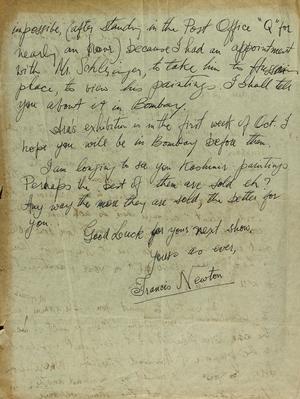 impossible, (after standing in the Post Office "Q" for
nearly an hour) because I had an appointment
with Mr. Schlesinger, to take him to Hussain
place, to view his paintings. I shall tell
you about it in Bombay.
Ara's exhibition is in the first week of Oct. I
hope you will be in Bombay before then.
I am longing to see you Kashmir paintings
Perhaps the best of them are sold eh?
Any way the more they are sold, the better for
you.
Good Luck for your next show,
Yours as ever,
Francis Newton